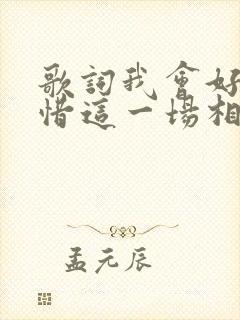 歌詞我會好
惜這一場相
孟元辰